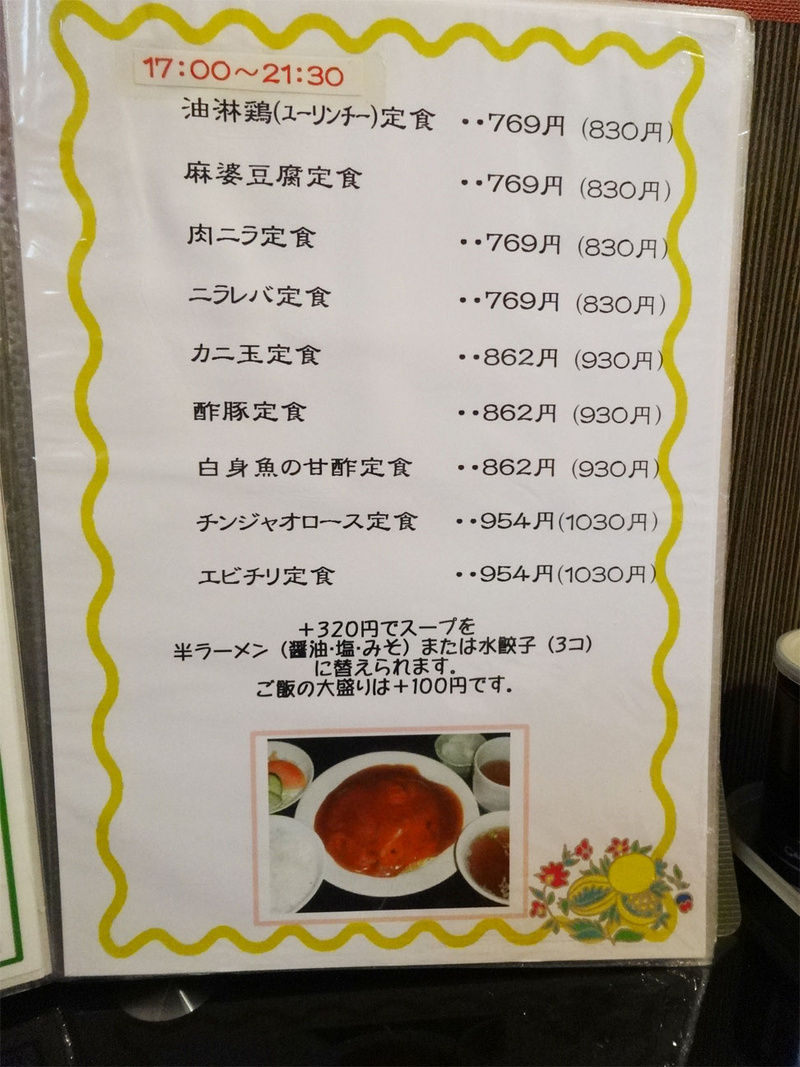 17:00〜21:30
油淋鶏(ユーリンチー)定食 ‥769円 (830円)
麻婆豆腐定食 ‥769円 (830円)
肉ニラ定食 ‥769円 (830円)
ニラレバ定食 ‥769円 (830円)
カニ玉定食 ‥862円 (930円)
酢豚定食 ‥862円 (930円)
白身魚の甘酢定食 ‥862円 (930円)
チンジャオロース定食 ‥954円(1030円)
エビチリ定食 ‥954円(1030円)
+320円でスープを
半ラーメン（醤油・塩・みそ）または水餃子（3コ）
に替えられます。
ご飯の大盛りは+100円です。